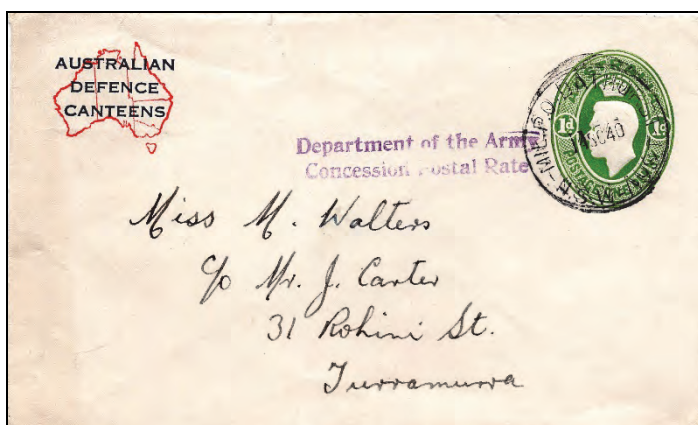 AUSTRALIAN
DEFENCE
CANTEENS
Department of the Army
Concession Postal Rate
1d
1d
POSTAGE
Miss M. Walters
c/o Mr. J. Carter
31 Rohini St.
Turramurra